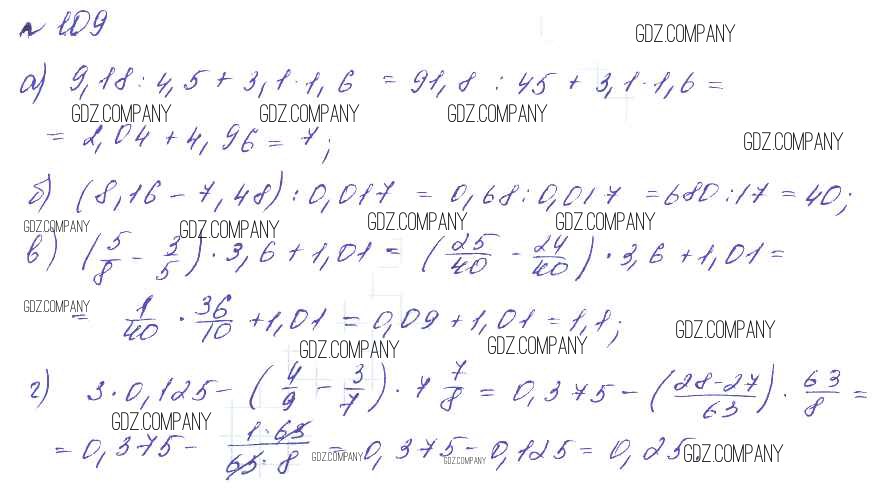 № 109
GDZ.COMPANY
а) 9,18 : 4,5 + 3,1 · 1,6 = 91,8 : 45 + 3,1 · 1,6 =
GDZ.COMPANY GDZ.COMPANY GDZ.COMPANY
= 2,04 + 4,96 = 7;
GDZ.COMPANY
б) (8,16 - 7,48) : 0,017 = 0,68 : 0,017 = 680 : 17 = 40;
GDZ.COMPANY GDZ.COMPANY GDZ.COMPANY GDZ.COMPANY
в) (5/8 - 3/5) · 3,6 + 1,01 = (25/40 - 24/40) · 3,6 + 1,01 =
GDZ.COMPANY
= 1/40 · 36/10 + 1,01 = 0,09 + 1,01 = 1,1;
GDZ.COMPANY GDZ.COMPANY GDZ.COMPANY
г) 3 · 0,125 - (4/9 - 3/7) · 7 7/8 = 0,375 - (28-27/63) · 63/8 =
GDZ.COMPANY
= 0,375 - 1·63/63·8 = 0,375 - 0,125 = 0,25.
GDZ.COMPANY GDZ.COMPANY GDZ.COMPANY